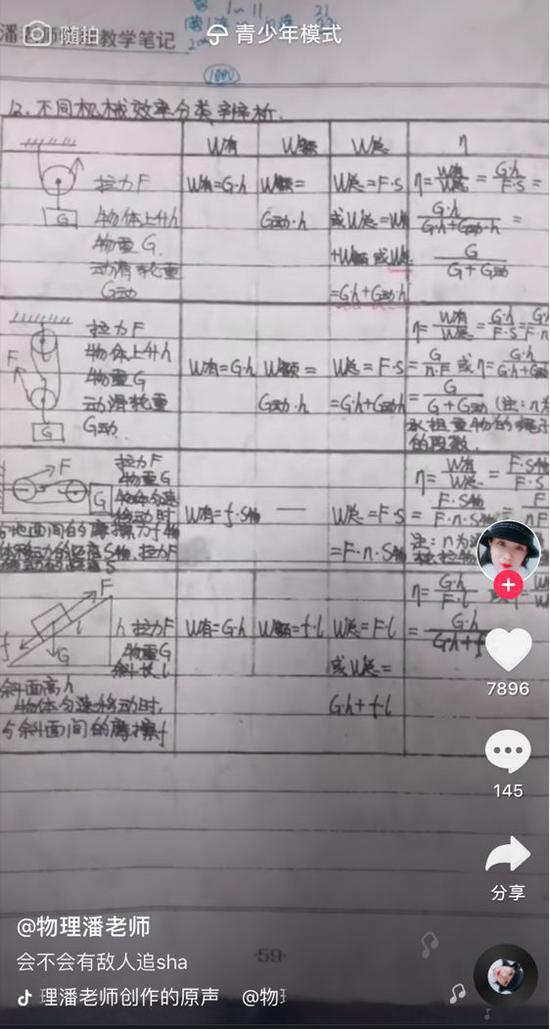 随拍
青少年模式
潘
教学笔记
12.不同机械效率分类辨析.
W有 W额 W总 η
拉力F
物体上升h
物重G
动滑轮重
G动
W有=G·h
W额=
G动·h
W总=F·s
或W总=W有
+W额或W总
=Gh+G动h
η=W有/W总=G·h/F·s=
G·h/G·h+G动·h=
G/G+G动
拉力F
物体上升h
物重G
动滑轮重
G动.
F
G
W有=G·h
W额=
G动·h
W总=F·s
=G·h+G动h
η=W有/W总=G·h/F·s
=G/n·F 或η=G·h/G·h+G动
=G/G+G动 (注:n为
承担重物的绳子
的段数.
F
G
拉力F
物重G
物体匀速
移动时
与地面间的摩擦力f
W有=f·S物
—
W总=F·s
=F·n·S物
η=W有/W总
注:n为
F
l
h
f
G
拉力F
物重G
斜长l
斜面高h
物体匀速移动时,
与斜面间的摩擦f
W有=G·h
W额=f·l
W总=F·l
或W总=
G·h+f·l
η=G·h/F·l
=G·h/Gh+f
7896
145
分享
@物理潘老师
会不会有敌人追sha
·59·
理潘老师创作的原声 @物理